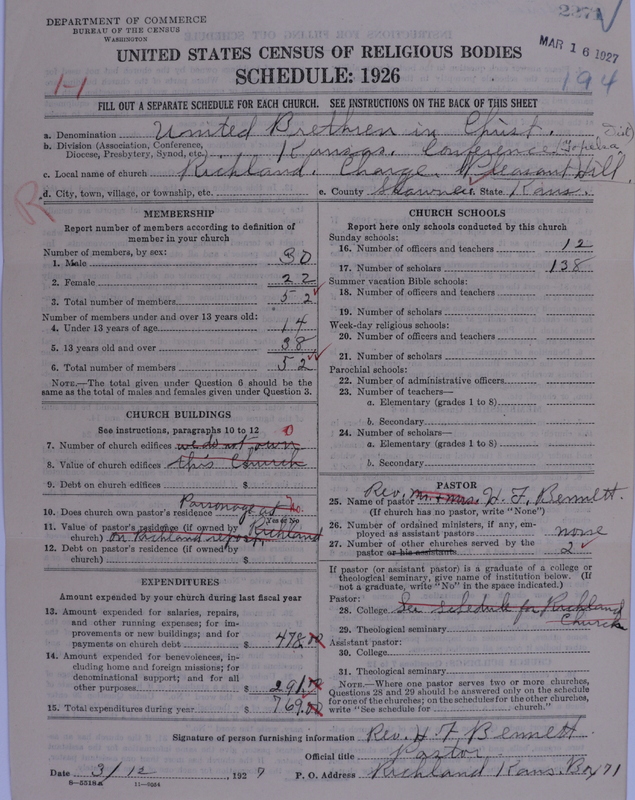 DEPARTMENT OF COMMERCE
BUREAU OF THE CENSUS
WASHINGTON
MAR 16 1927
194
UNITED STATES CENSUS OF RELIGIOUS BODIES
SCHEDULE: 1926
1-1
FILL OUT A SEPARATE SCHEDULE FOR EACH CHURCH. SEE INSTRUCTIONS ON THE BACK OF THIS SHEET
a. Denomination United Brethren in Christ.
b. Division (Association, Conference, Diocese, Presbytery, Synod, etc.) Kansas Conference (Topeka Dist)
c. Local name of church Richland Charge. Pleasant Hill
R
d. City, town, village, or township, etc. e. County Shawnee f. State Kans.
MEMBERSHIP
Report number of members according to definition of
member in your church
Number of members, by sex:
1. Male 30
2. Female 22
3. Total number of members 52
Number of members under and over 13 years old:
4. Under 13 years of age 14
5. 13 years old and over 38
6. Total number of members 52
NOTE.—The total given under Question 6 should be the
same as the total of males and females given under Question 3.
CHURCH BUILDINGS
See instructions, paragraphs 10 to 12
7. Number of church edifices we do not own 0
8. Value of church edifices this Church
9. Debt on church edifices $
10. Does church own pastor's residence? Parsonage at no.
Yes or No
11. Value of pastor's residence (if owned by Richland
church) on Richland report.
12. Debt on pastor's residence (if owned by
church) $
EXPENDITURES
Amount expended by your church during last fiscal year
13. Amount expended for salaries, repairs,
and other running expenses; for im-
provements or new buildings; and for
payments on church debt $ 478.
14. Amount expended for benevolences, in-
cluding home and foreign missions; for
denominational support; and for all
other purposes $ 291.
15. Total expenditures during year $ 769.
CHURCH SCHOOLS
Report here only schools conducted by this church
Sunday schools:
16. Number of officers and teachers 12
17. Number of scholars 138
Summer vacation Bible schools:
18. Number of officers and teachers
19. Number of scholars
Week-day religious schools:
20. Number of officers and teachers
21. Number of scholars
Parochial schools:
22. Number of administrative officers
23. Number of teachers—
a. Elementary (grades 1 to 8)
b. Secondary
24. Number of scholars—
a. Elementary (grades 1 to 8)
b. Secondary
PASTOR
25. Name of pastor Rev. Mr. & Mrs. H. F. Bennett.
(If church has no pastor, write "None")
26. Number of ordained ministers, if any, em-
ployed as assistant pastors none
27. Number of other churches served by the
pastor or his assistants 2
If pastor (or assistant pastor) is a graduate of a college or
theological seminary, give name of institution below. (If
not a graduate, write "No" in the space indicated.)
Pastor:
28. College See schedule for Richland
Church
29. Theological seminary
Assistant pastor:
30. College
31. Theological seminary
NOTE.—Where one pastor serves two or more churches,
Questions 28 and 29 should be answered only on the schedule
for one of the churches; on the schedules for the other churches,
write "See schedule for church."
Signature of person furnishing information Rev. H F Bennett
Official title Pastor
Date 3/12 1927 P. O. Address Richland Kans. Box 71
8-5518a 11-8064